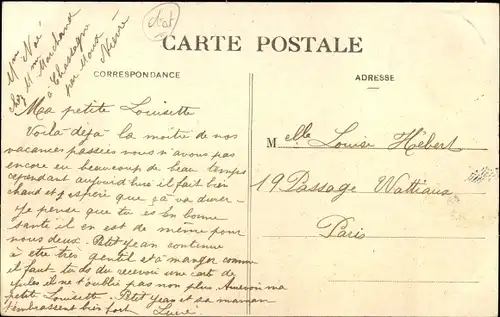 Mme Noé
chez Mme Marchand
à Chassagne
par Moux
Nièvre
CARTE POSTALE
CORRESPONDANCE
ADRESSE
Ma petite Louisette
Voilà dejà la moitié de nos
vacances passées nous n'avons pas
encore eu beaucoup de beau temps
cependant aujourd'hui il fait bien
chaud et j'espère que ça va durer
Je pense que tu es en bonne
santé il en est de même pour
nous deux. Petit Jean continue
à être très gentil et à manger comme
il faut. tu as du recevoir une carte de
Jules il ne t'oublie pas non plus. Au revoir ma
petite Louisette. Petit Jean et sa maman
t'embrassent bien fort
Melle Louise Hébert
19 Passage Wattiaux
Paris